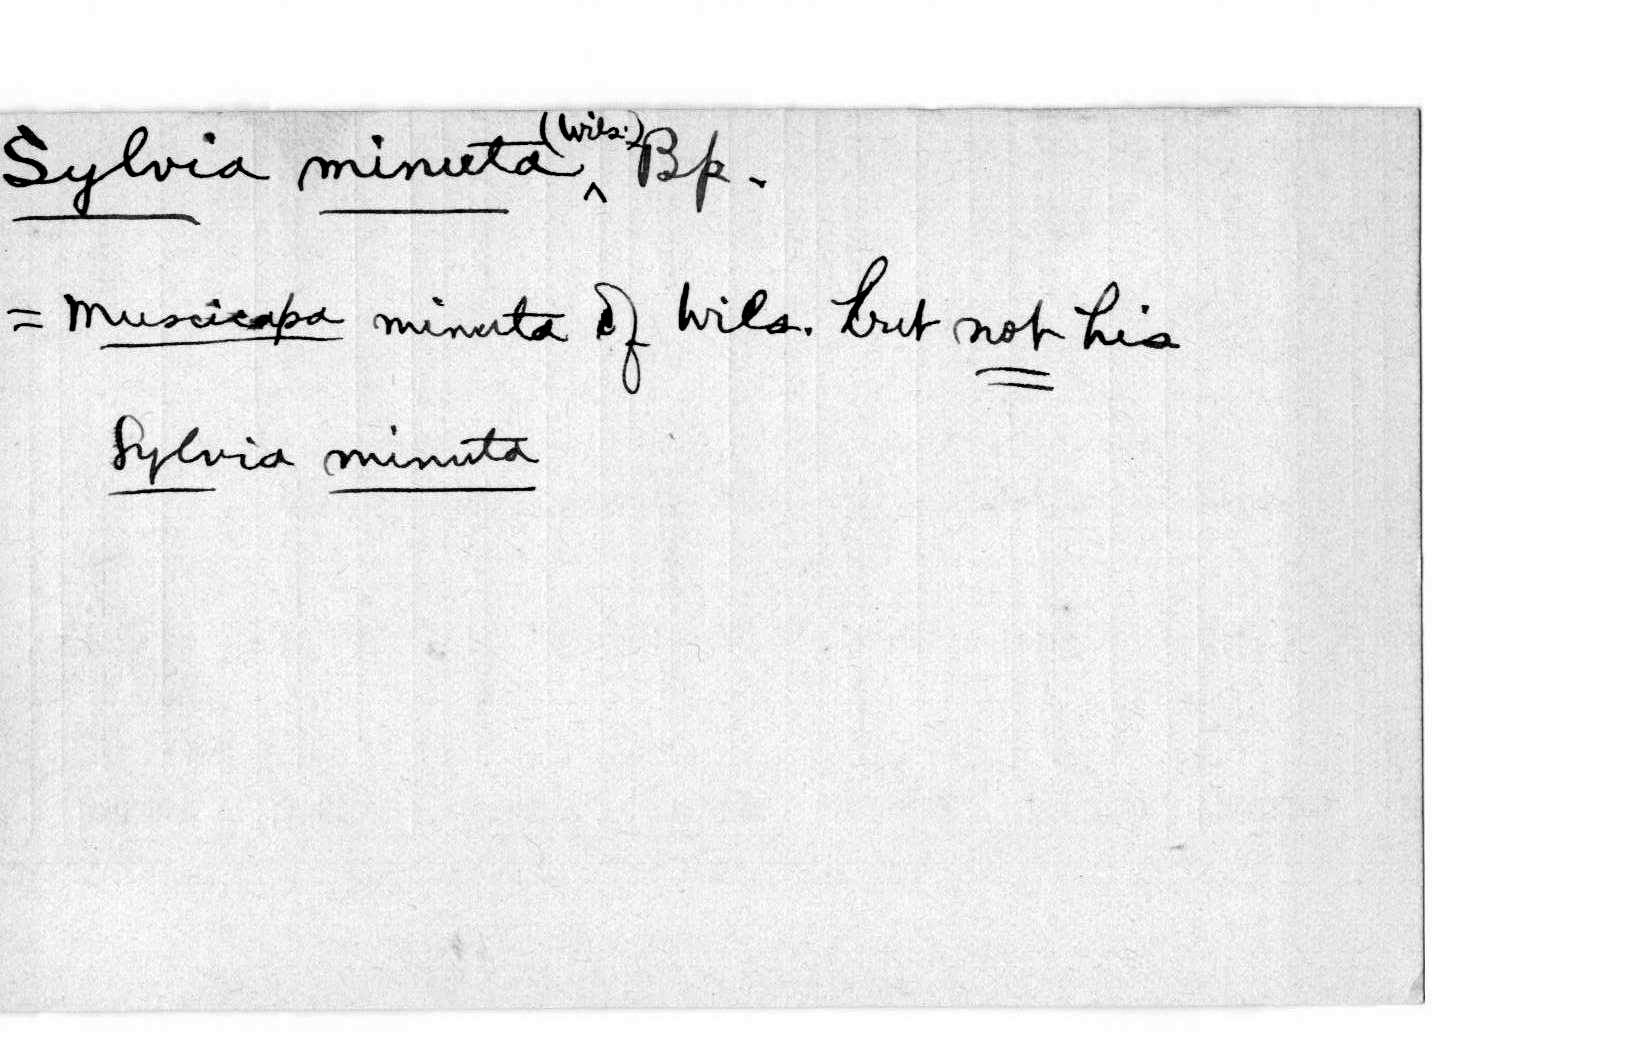 Sylvia minuta (Wils.) Bp.
= Muscicapa minuta of Wils. but not his
Sylvia minuta